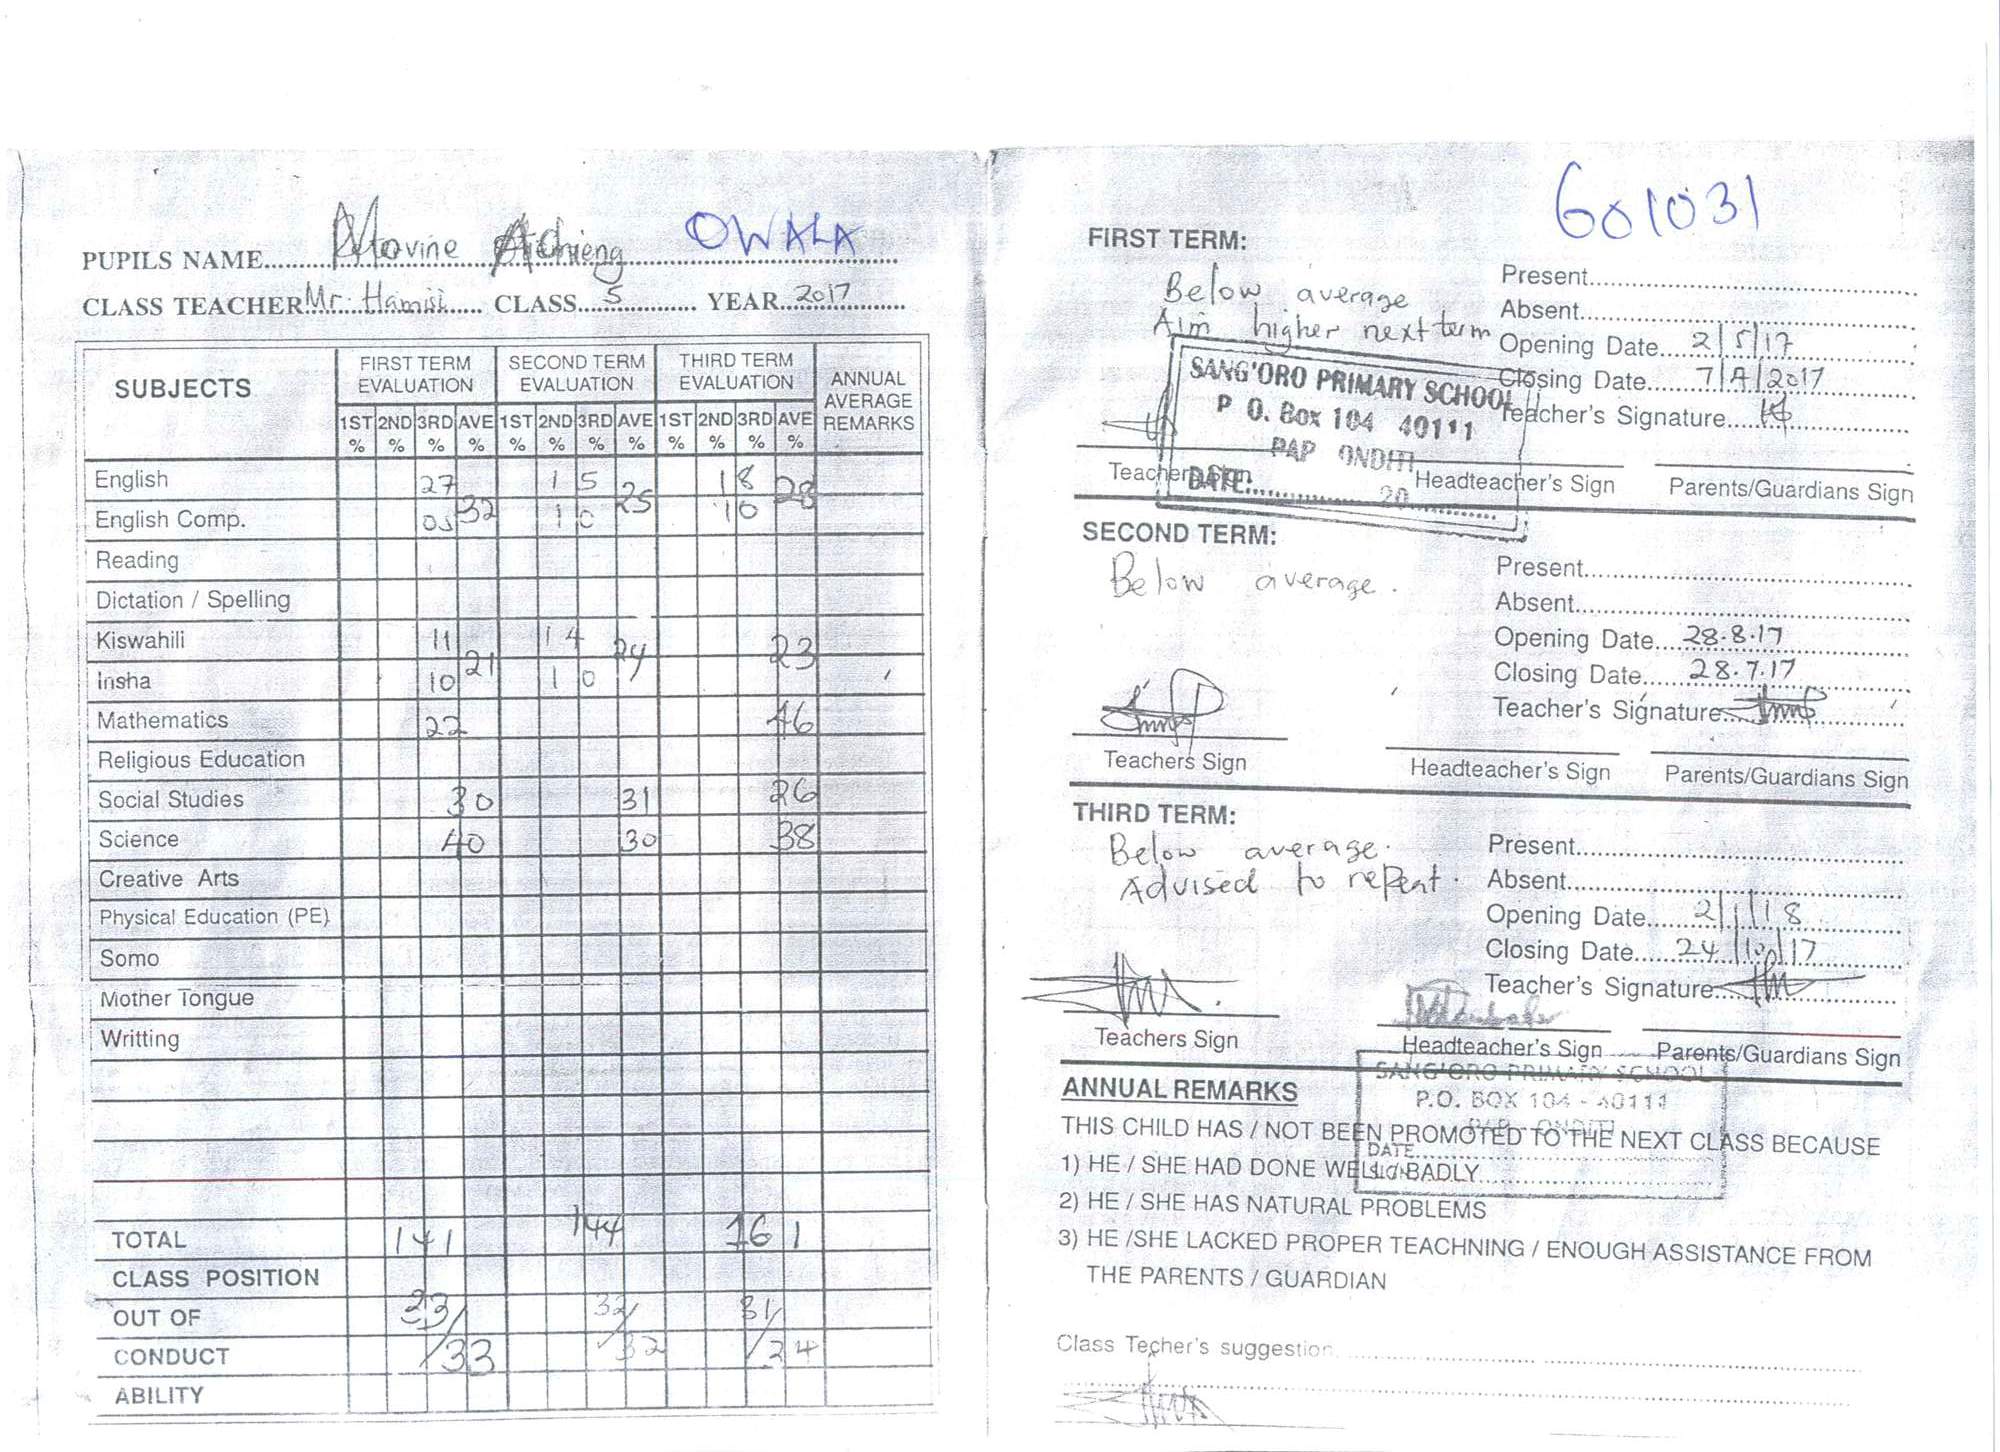 PUPILS NAME Movine Achieng OWALA
CLASS TEACHER Mr. Hamisi CLASS 5 YEAR 2017
SUBJECTS FIRST TERM EVALUATION SECOND TERM EVALUATION THIRD TERM EVALUATION ANNUAL AVERAGE REMARKS
1ST % 2ND % 3RD % AVE % 1ST % 2ND % 3RD % AVE % 1ST % 2ND % 3RD % AVE %
English 27 32 15 25 18 28
English Comp. 05 10 10
Reading
Dictation / Spelling
Kiswahili 11 21 14 24 23
Insha 10 10
Mathematics 22 46
Religious Education
Social Studies 30 31 26
Science 40 30 38
Creative Arts
Physical Education (PE)
Somo
Mother Tongue
Writting
TOTAL 141 144 161
CLASS POSITION
OUT OF 23/ 32/ 31/
CONDUCT 33 32 34
ABILITY
601031
FIRST TERM:
Below average
Aim higher next term
Present
Absent
Opening Date 2/5/17
Closing Date 7/4/2017
Teacher's Signature
SANG'ORO PRIMARY SCHOOL
P O. Box 104 40111
PAP ONDITI
DATE 20
Teachers Sign Headteacher's Sign Parents/Guardians Sign
SECOND TERM:
Below average.
Present
Absent
Opening Date 28.8.17
Closing Date 28.7.17
Teacher's Signature
Teachers Sign Headteacher's Sign Parents/Guardians Sign
THIRD TERM:
Below average.
Advised to repeat.
Present
Absent
Opening Date 2/1/18
Closing Date 24/10/17
Teacher's Signature
Teachers Sign Headteacher's Sign Parents/Guardians Sign
SANG'ORO PRIMARY SCHOOL
P.O. BOX 104 - 40111
PAP - ONDITI
DATE
ANNUAL REMARKS
THIS CHILD HAS / NOT BEEN PROMOTED TO THE NEXT CLASS BECAUSE
1) HE / SHE HAD DONE WELL / BADLY
2) HE / SHE HAS NATURAL PROBLEMS
3) HE /SHE LACKED PROPER TEACHNING / ENOUGH ASSISTANCE FROM
THE PARENTS / GUARDIAN
Class Techer's suggestion